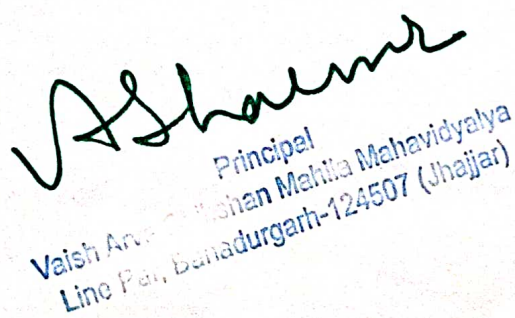 ASharma
Principal
Vaish Arya shan Mahila Mahavidyalya
Line Par, Bahadurgarh-124507 (Jhajjar)